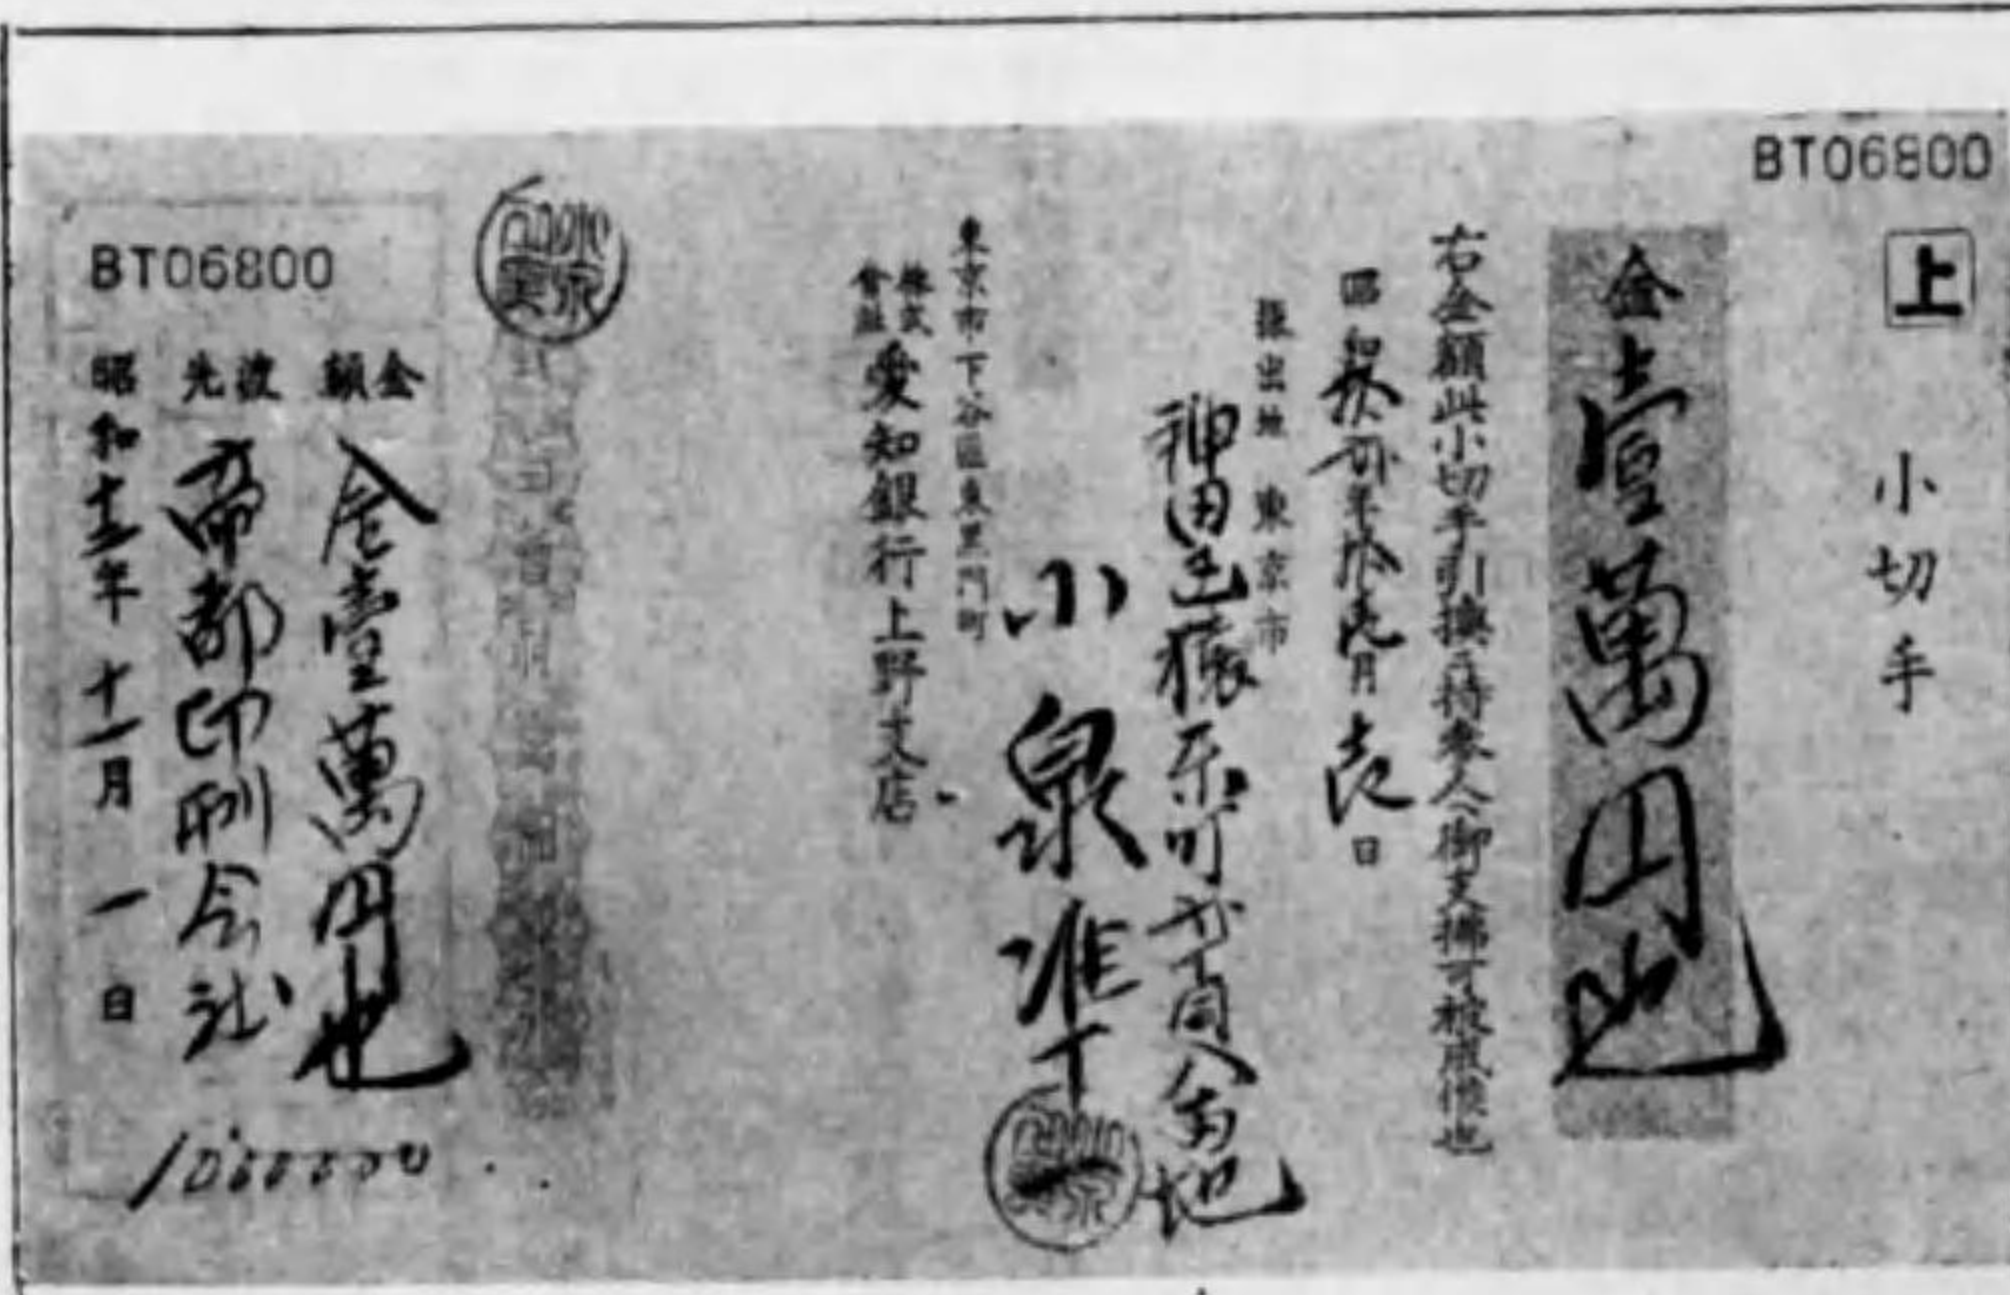 BT06800
上
小切手
金壹萬円也
右金額此小切手引換ニ持參人ヘ御支拂可被成候也
昭和拾年拾壱月壱日
振出地 東京市
神田区猿楽町
小泉準一
東京市下谷區東黒門町
株式會社愛知銀行上野支店
BT06800
金額 金壹萬円也
渡先 帝都印刷会社
昭和十三年十一月一日